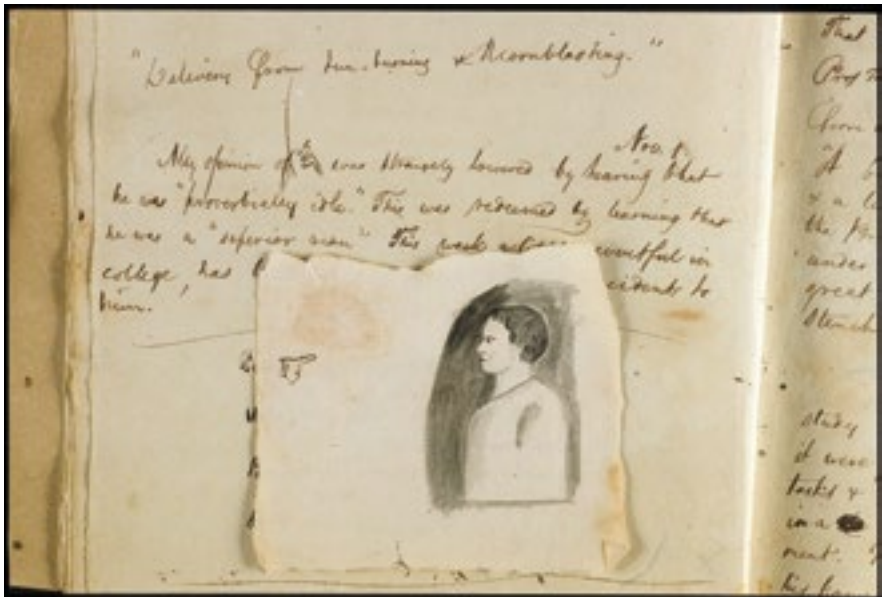 "Delivery from Sun-burning & Moonblasting."
Nov. 1.
My opinion of was strangely lowered by hearing that
he was "proverbially idle." This was redeemed by learning that
he was a "superior man." This week eventful in
college, has cidents to
him.
That
Prof
from
"A
& a
the
under
great
study
it were
tasks &
in a
ment.
his